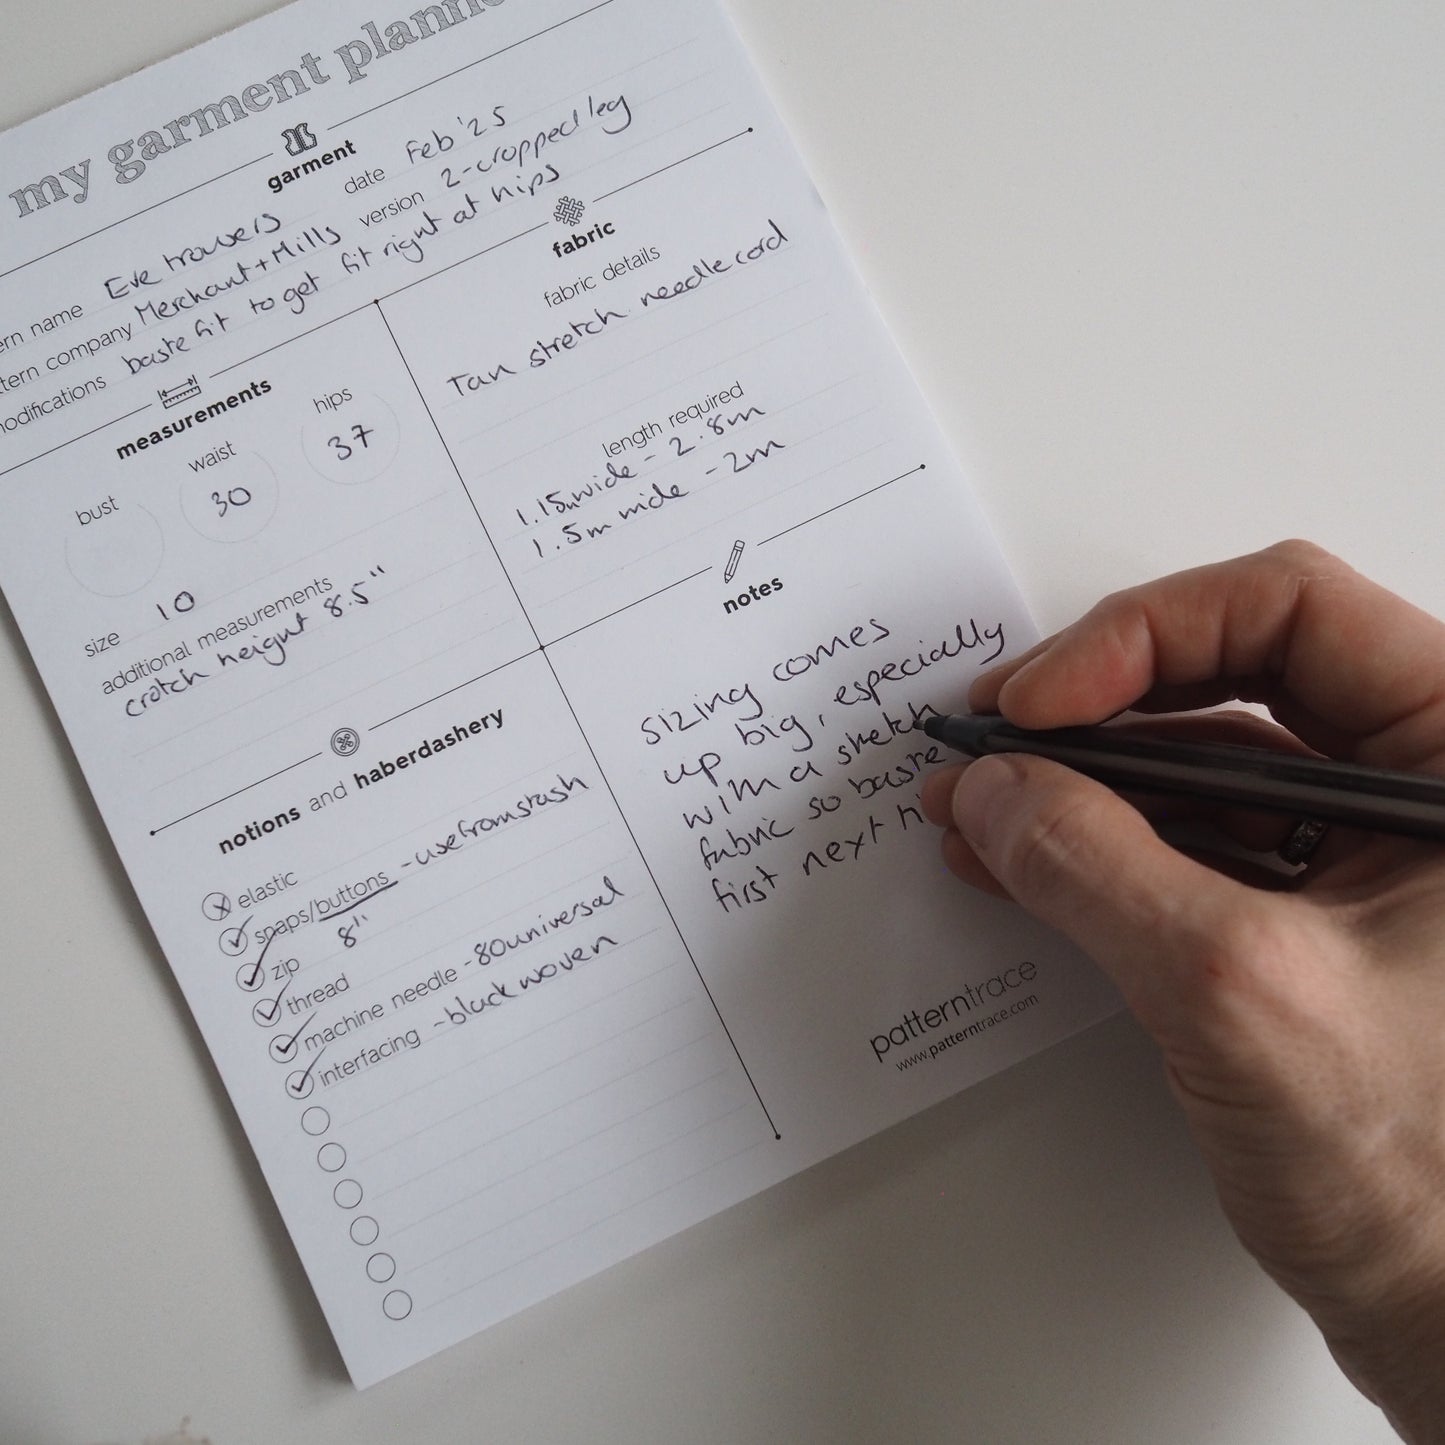 my garment planne
garment
ern name Eve trousers date Feb '25
tern company Merchant + Mills version 2-cropped leg
modifications baste fit to get fit right at hips
measurements
bust waist 30 hips 37
size 10
additional measurements
crotch height 8.5"
fabric
fabric details
Tan stretch needlecord
length required
1.15m wide - 2.8m
1.5m wide - 2m
notions and haberdashery
elastic
snaps/buttons - use from stash
zip 8"
thread
machine needle - 80 universal
interfacing - black woven
notes
sizing comes
up big, especially
with a stretch
fabric so baste
first next
patterntrace
www.patterntrace.com